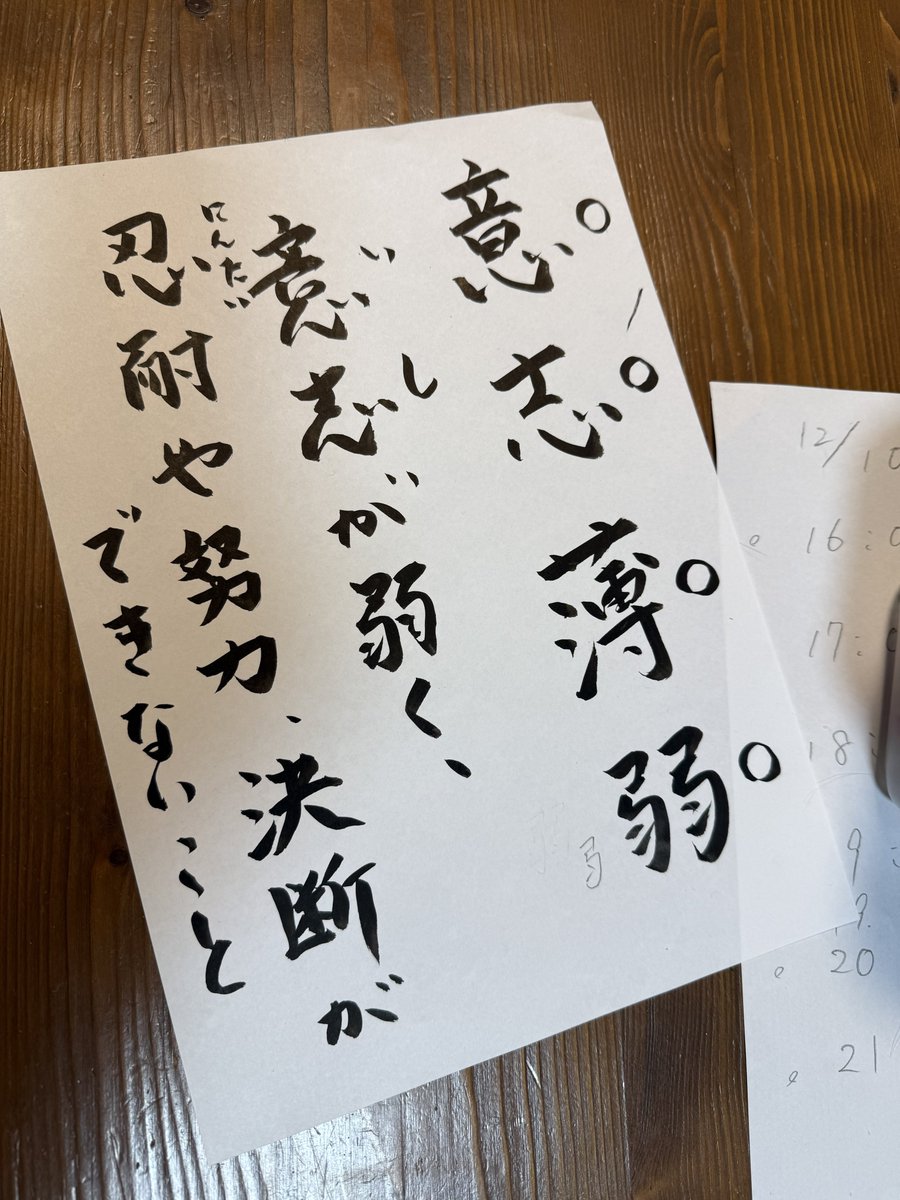 意志薄弱
いし
意志が弱く、
にんたい
忍耐や努力、決断が
できないこと
12/10
16:0
17:
18:
20
21